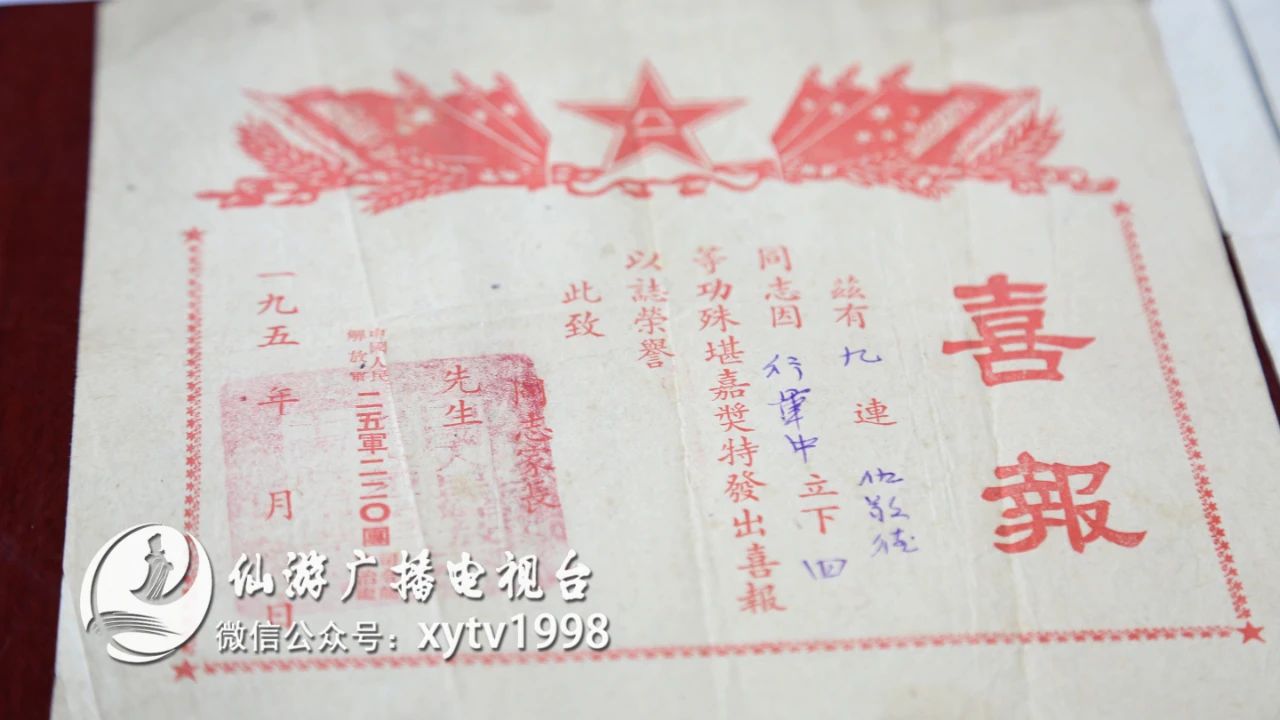 喜報
茲有九連伍敬德
同志因行軍中立下四
等功殊堪嘉奬特發出喜報
以誌榮譽
此致
同志家長
先生
中國人民
解放軍
二五軍二二〇團
一九五 年 月 日
仙游广播电视台
微信公众号：xytv1998